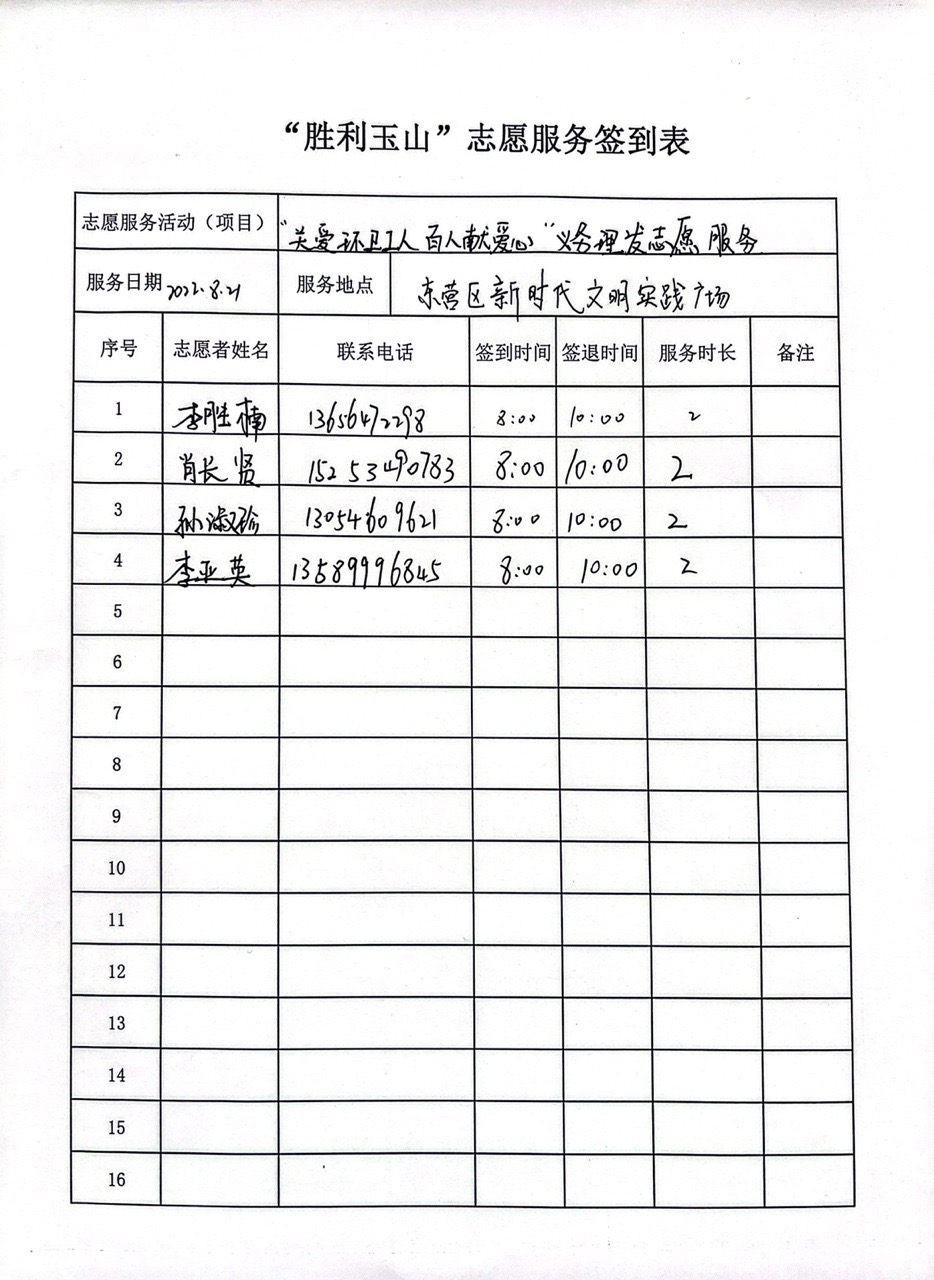 “胜利玉山”志愿服务签到表
志愿服务活动（项目） “关爱环卫工人 百人献爱心”义务理发志愿服务
服务日期 2022.8.21 服务地点 东营区新时代文明实践广场
序号 志愿者姓名 联系电话 签到时间 签退时间 服务时长 备注
1 李胜楠 13656472298 8:00 10:00 2
2 肖长贤 15253490783 8:00 10:00 2
3 孙淑珍 13054609621 8:00 10:00 2
4 李亚英 13589996845 8:00 10:00 2
5
6
7
8
9
10
11
12
13
14
15
16